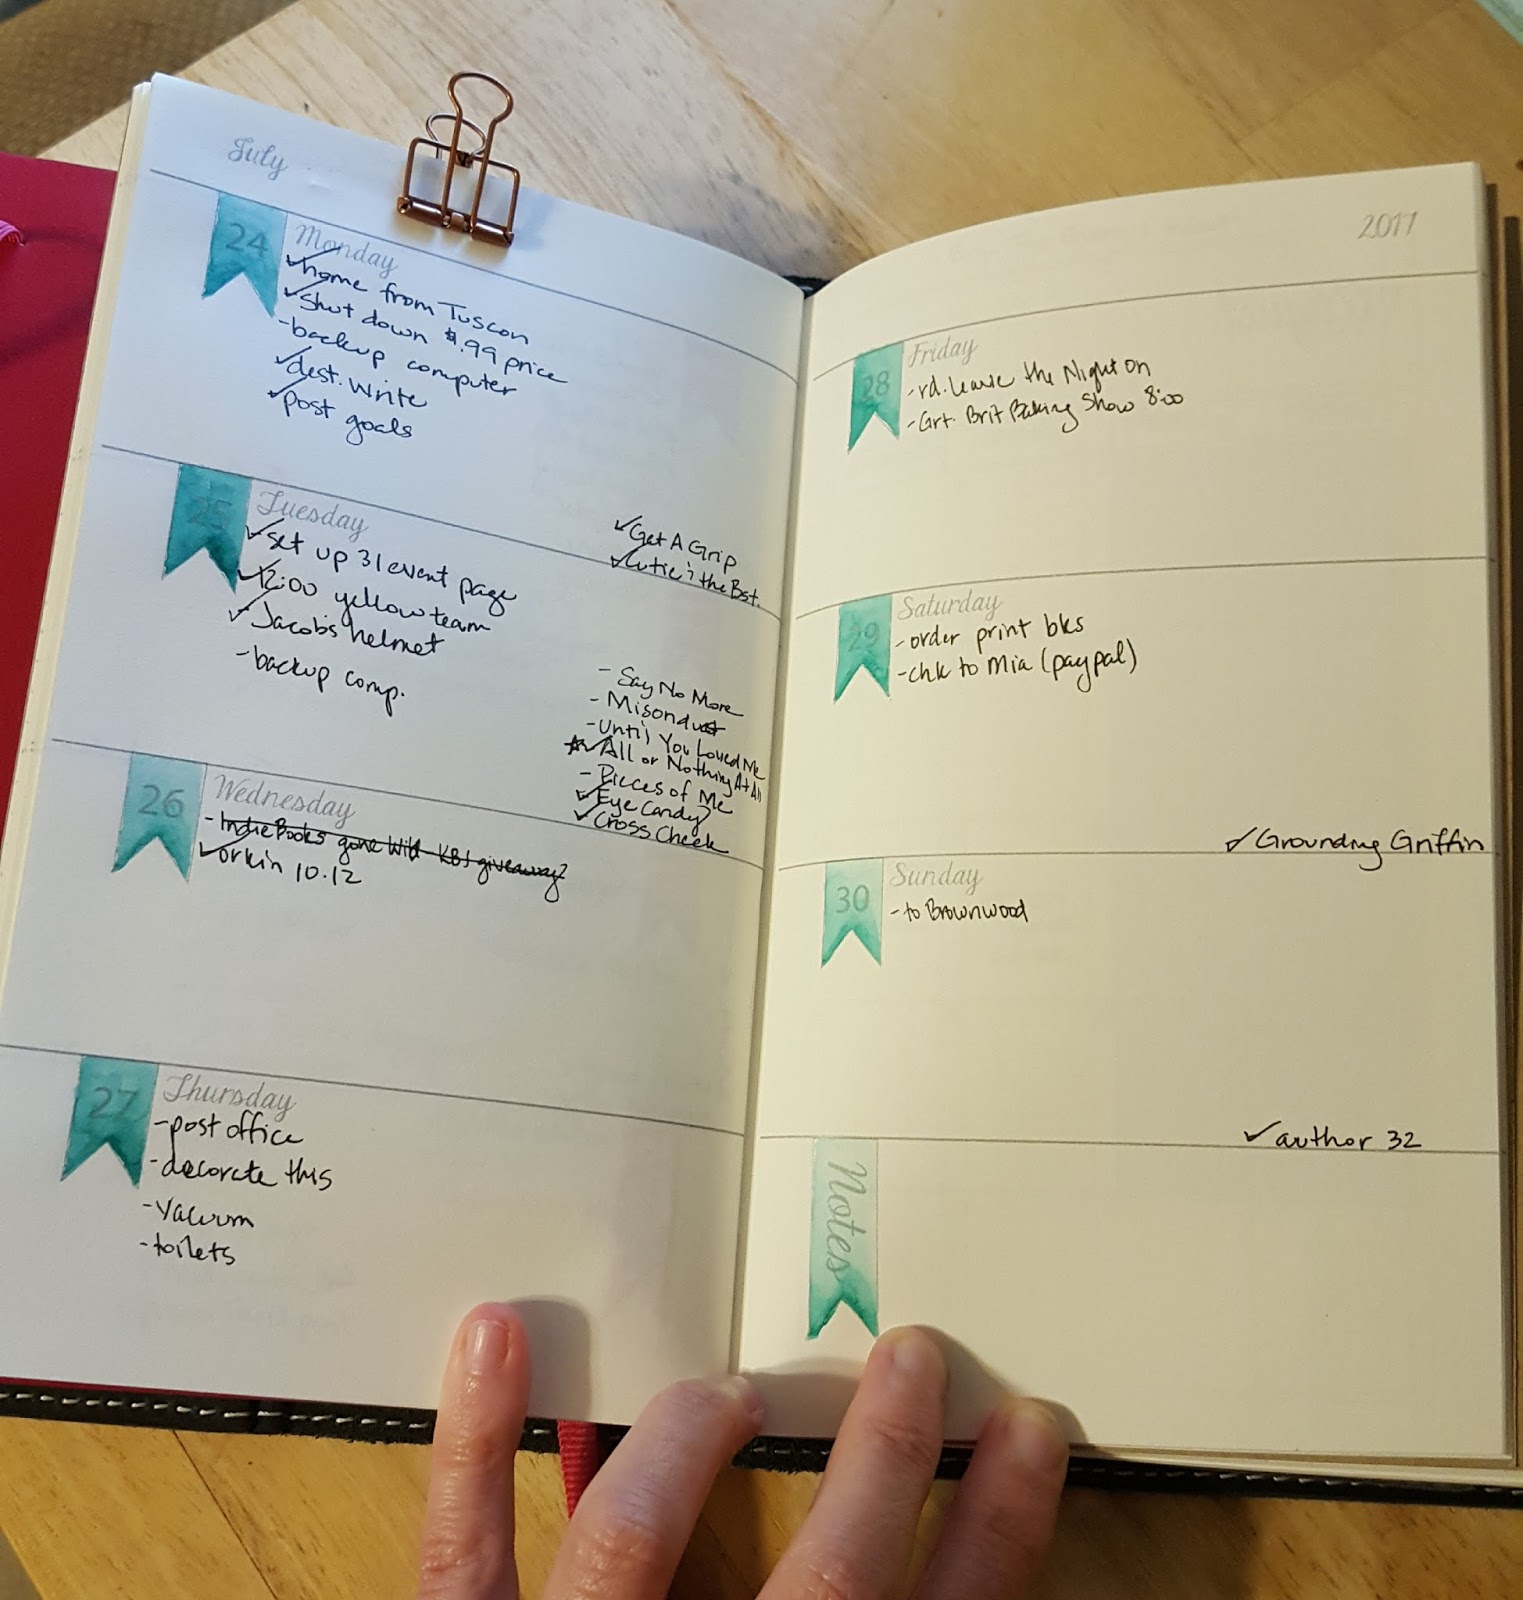 July
24 Monday
✓home from Tuscon
✓Shut down $.99 price
-backup computer
✓dest. Write
✓post goals
✓Get A Grip
✓Cutie & the Bst.
25 Tuesday
✓set up 31 event page
✓12:00 yellow team
✓Jacob's helmet
-backup comp.
- Say No More
- Misondust
- Until You Loved Me
★✓All or Nothing At All
- Pieces of Me
✓Eye Candy
✓Cross Check
26 Wednesday
- Indie Books gone Wild - KBJ giveaway?
✓orkin 10-12
27 Thursday
-post office
-decorate this
-vacuum
-toilets
2017
28 Friday
-rd. Leave the Night On
-Grt. Brit Baking Show 8:00
29 Saturday
-order print bks
-chk to Mia (paypal)
✓Grounding Griffin
30 Sunday
-to Brownwood
✓author 32
Notes